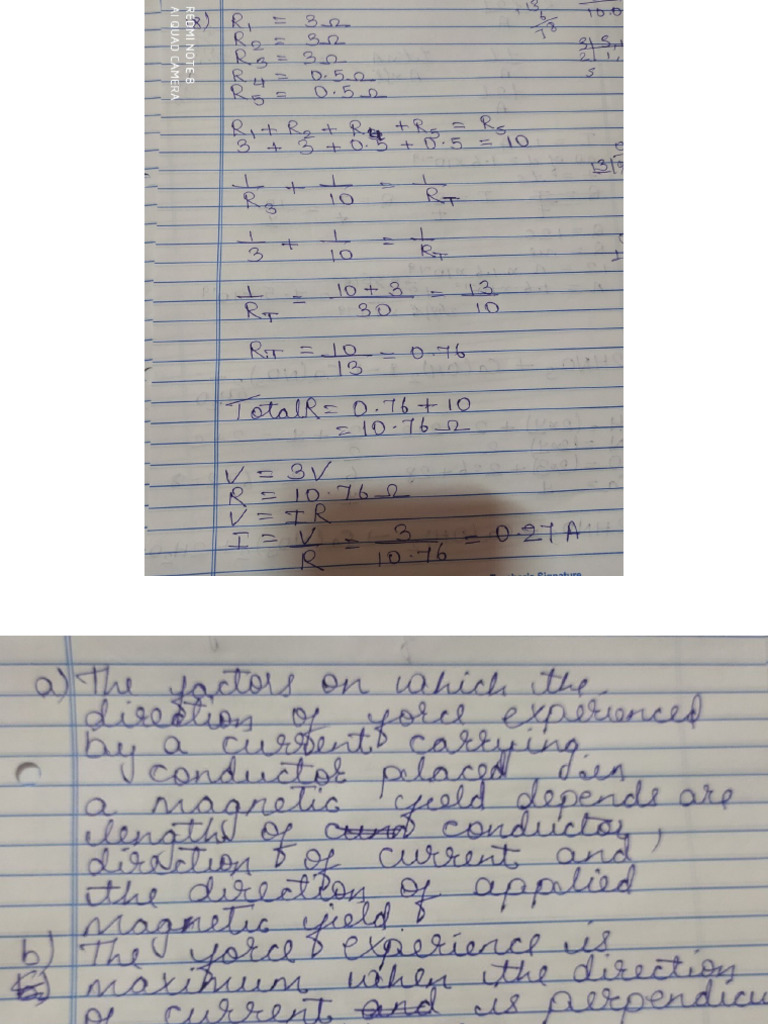 REDMI NOTE 8
AI QUAD CAMERA
R1 = 3Ω
R2 = 3Ω
R3 = 3Ω
R4 = 0.5Ω
R5 = 0.5Ω
R1 + R2 + R4 + R5 = R5
3 + 3 + 0.5 + 0.5 = 10
1/R3 + 1/10 = 1/RT
1/3 + 1/10 = 1/RT
1/RT = 10+3/30 = 13/10
RT = 10/13 = 0.76
Total R = 0.76 + 10
= 10.76 Ω
V = 3V
R = 10.76 Ω
V = IR
I = V/R = 3/10.76 = 0.27 A
a) The factors on which the
direction of force experienced
by a current carrying
conductor placed in
a magnetic field depends are
length of conductor,
direction of current and
the direction of applied
magnetic field
b) The force experience is
maximum when the direction
of current is